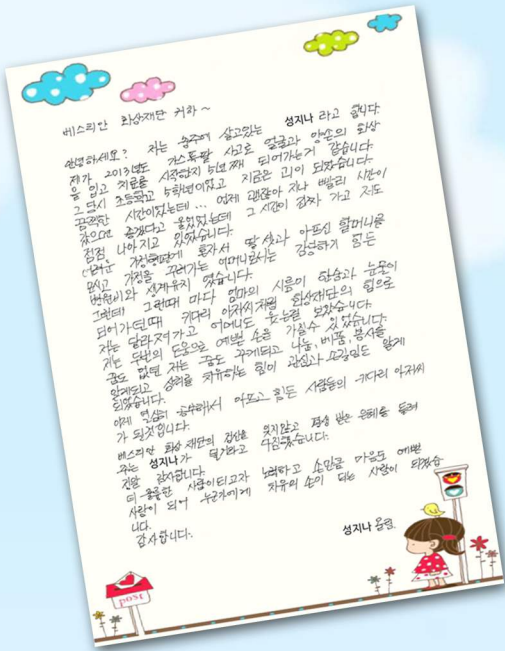 베스티안 화상재단 귀하~
안녕하세요? 저는 광주에 살고있는 성지나 라고 합니다.
제가 2013년도 가스폭발 사고로 얼굴과 양손의 화상
을 입고 치료를 시작한지 5년째 되어가는거 같습니다.
그 당시 초등학교 5학년이었고 지금은 고1이 되었습니다.
끔찍한 시간이었는데... 언제 괜찮아 지나 빨리 시간이
갔으면 좋겠다고 울었었는데 그 시간이 점차 가고 저도
점점 나아지고 있었습니다.
어려운 가정형편에 혼자서 딸 셋과 아프신 할머니를
모시고 가정을 꾸려가는 어머니로서는 감당하기 힘든
병원비와 생계유지 였습니다.
그런데 그런때 마다 엄마의 시름이 한숨과 눈물이
되어가던때 키다리 아저씨처럼 화상재단의 힘으로
저는 달라져가고 어머니도 웃는걸 보았습니다.
저는 두번의 도움으로 예쁜 손을 가질수 있었습니다.
꿈도 없던 저는 꿈도 꾸게되고 나눔, 베품, 봉사를
알게되고 상처를 치유하는 힘이 관심과 손길임도 알게
되었습니다.
이제 열심히 공부해서 아프고 힘든 사람들의 키다리 아저씨
가 될것입니다.
베스티안 화상 재단의 감사함 잊지않고 평생 받은 은혜를 돌려
주는 성지나가 될거라고 다짐했습니다.
정말 감사합니다.
더 훌륭한 사람이 되고자 노력하고 손만큼 마음도 예쁜
사람이 되어 누군가에게 치유의 손이 되는 사람이 되겠습
니다.
감사합니다.
성지나 올림
post